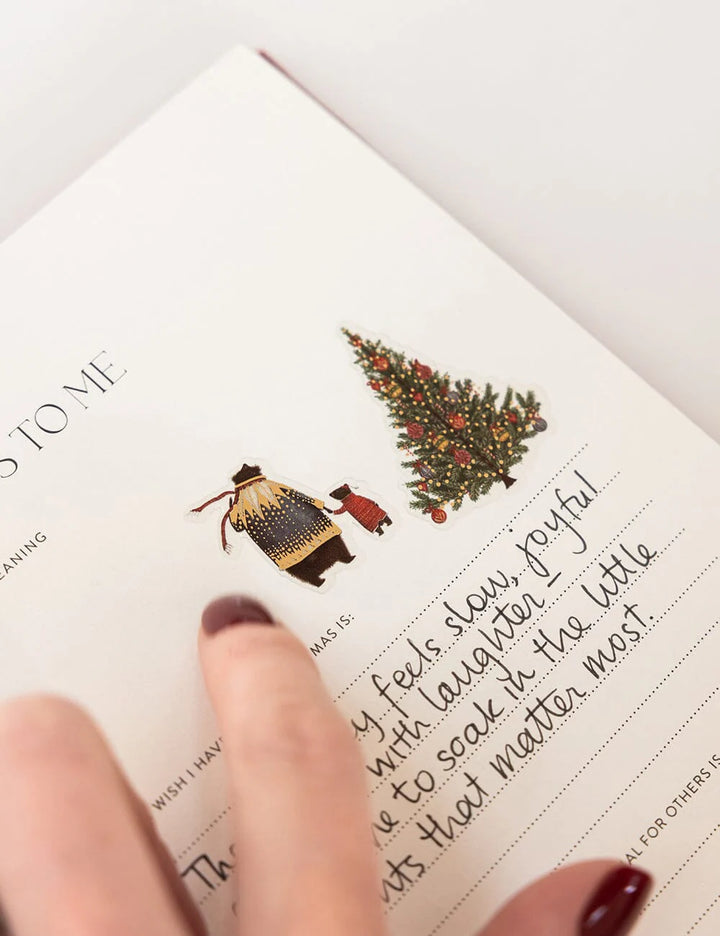 S TO ME
EANING
MAS IS:
y feels slow, joyful
with laughter –
me to soak in the little
nts that matter most.
WISH I HAV
Th
AL FOR OTHERS IS